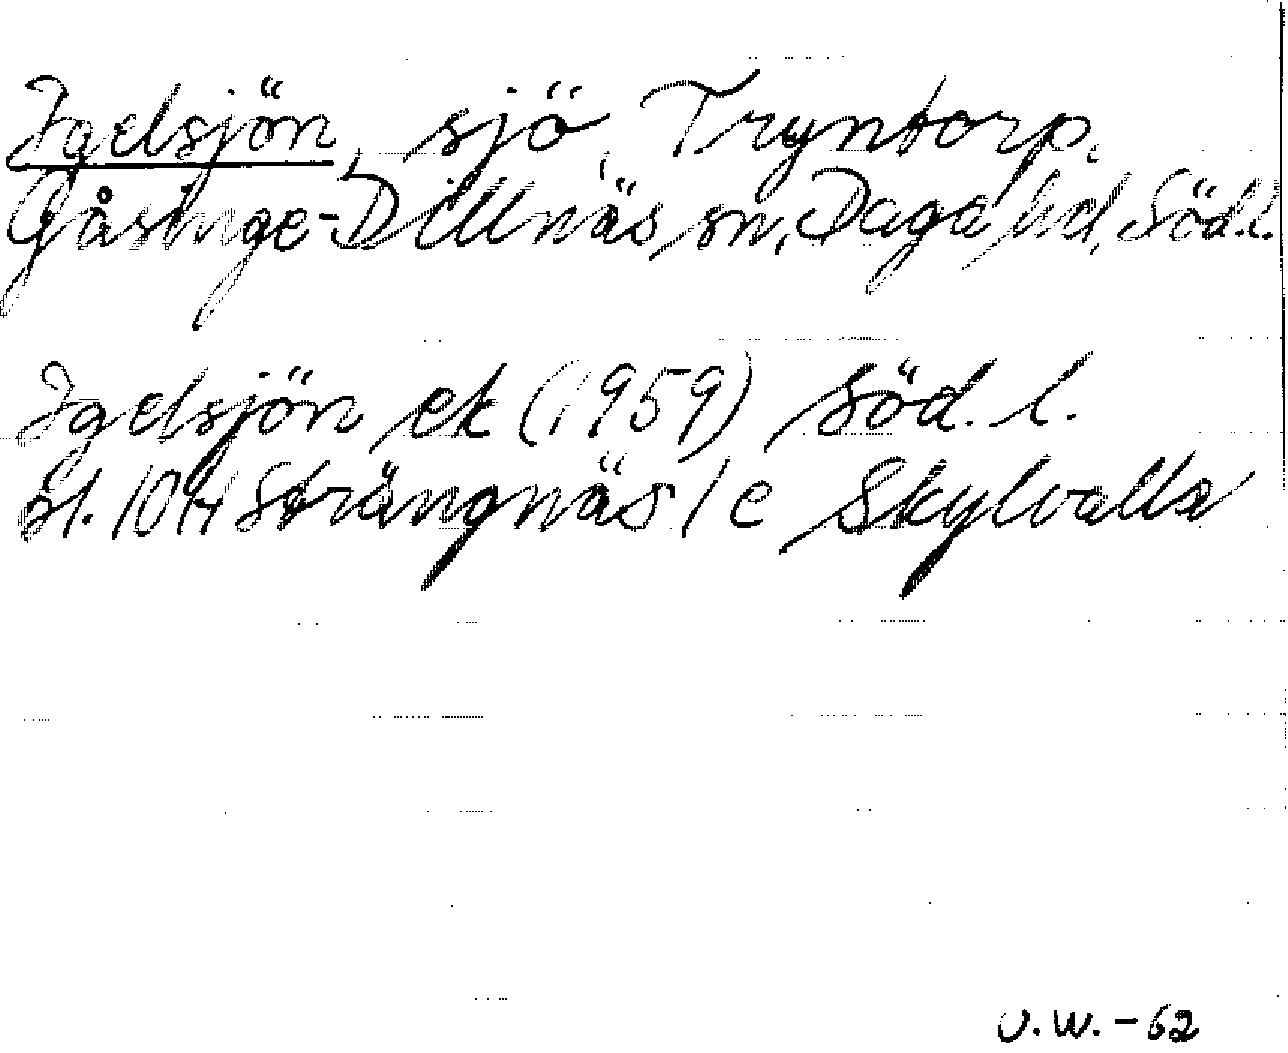 Igelsjön, sjö, Tryntorp,
Gåsinge-Dillnäs sn, Daga hd, Söd.l.
Igelsjön ek (1959) Söd. l.
bl. 10H Strängnäs 1 c Skylvalla
U.W. - 62